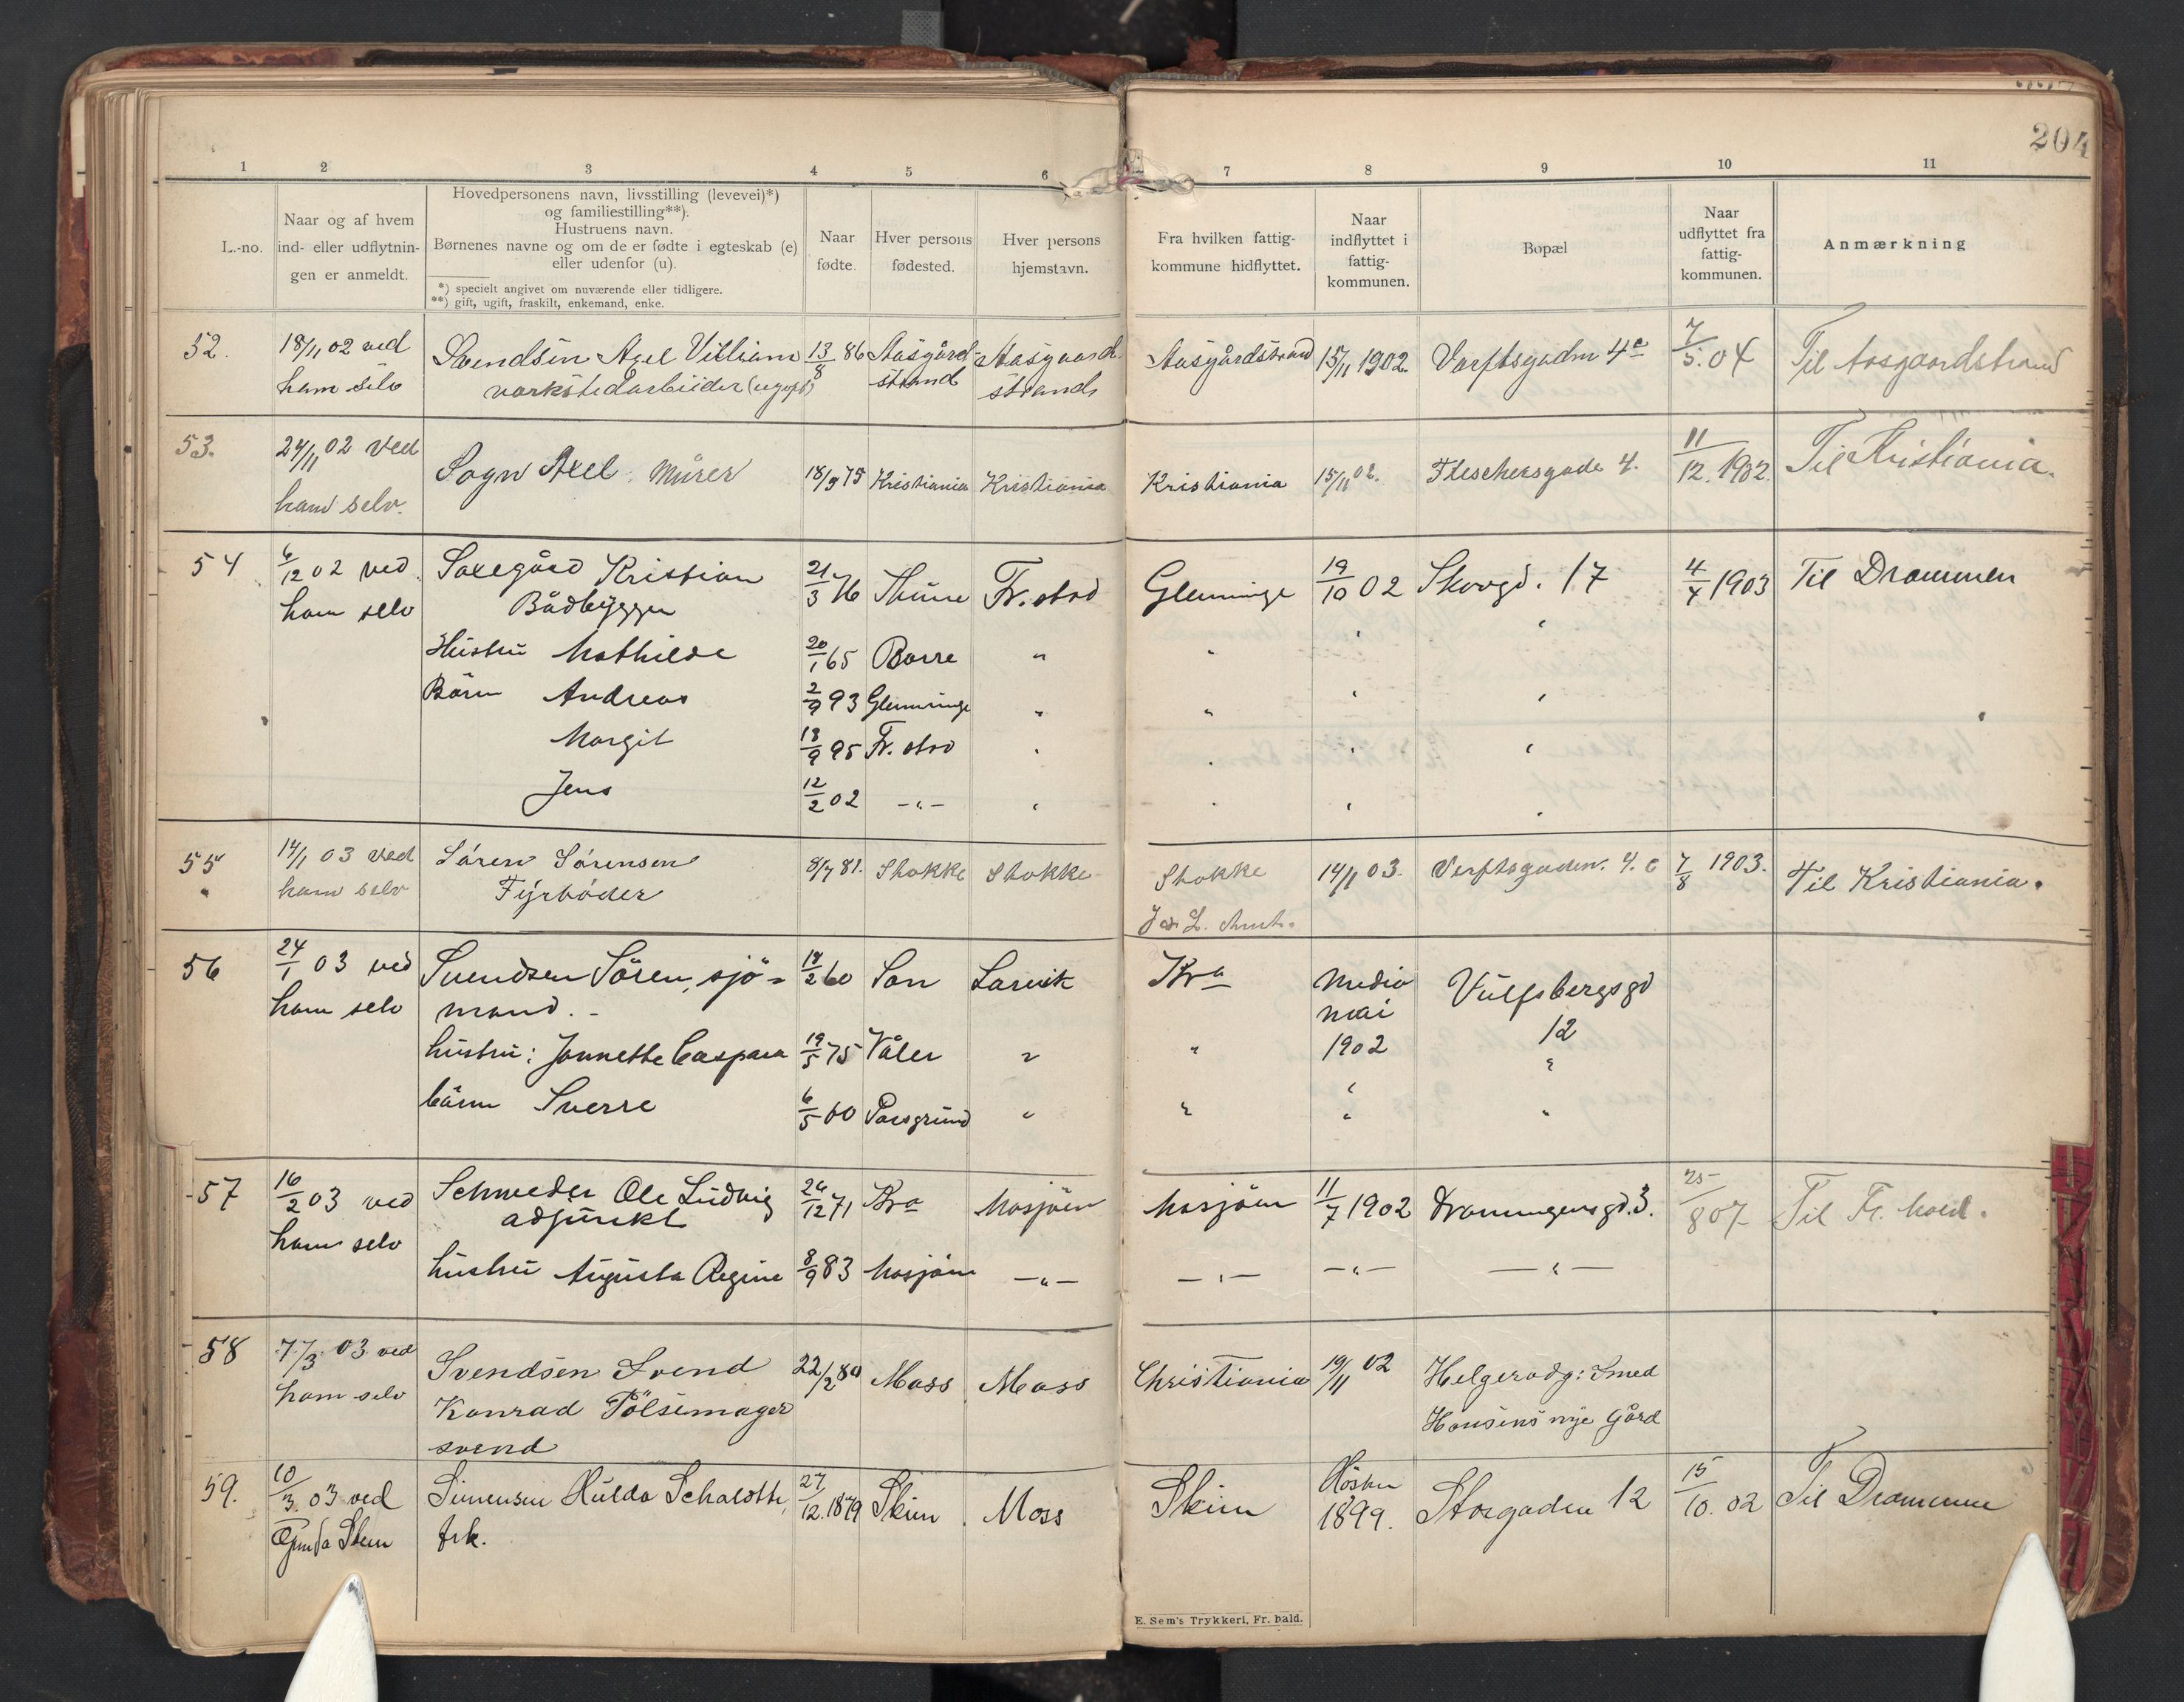 204
1 2 3 4 5 6 7 8 9 10 11
L.-no.
Naar og af hvem
ind- eller udflytnin-
gen er anmeldt.
Hovedpersonens navn, livsstilling (levevei)*)
og familiestilling**).
Hustruens navn.
Børnenes navne og om de er fødte i egteskab (e)
eller udenfor (u).
*) specielt angivet om nuværende eller tidligere.
**) gift, ugift, fraskilt, enkemand, enke.
Naar
fødte.
Hver persons
fødested.
Hver persons
hjemstavn.
Fra hvilken fattig-
kommune hidflyttet.
Naar
indflyttet i
fattig-
kommunen.
Bopæl
Naar
udflyttet fra
fattig-
kommunen.
Anmærkning
52. 18/11 02 ved Svendsen Axel Villiam 13/8 86 Aasgård- Aasgaard- Aasgårdstrand 15/11 1902. Varftsgaden 4a 7/5.04 Til Aasgaardstrand
ham selv varkstedarbeider (ugift) strand strand
53. 24/11 02 ved Sogn Axel. Mürer 18/9 75 Kristiania Kristiania Kristiania 15/11 02. Fleschersgade 4. 11/12.1902. Til Kristiania.
ham selv.
54 6/12 02 ved Saxegård Kristian 21/3 76 Thune Fr.stad Glemminge 19/10 02 Skovgd. 17 4/4 1903 Til Drammen
ham selv Bådbygger
Hustru Mathilde 20/1 65 Borre "
Børn Andreas 2/9 93 Glemminge "
Margit 18/9 95 Fr.stad "
Jens 12/2 02 -"- "
55 14/1 03 ved Søren Sørensen 8/7 81. Stokke Stokke Stokke 14/1 03. Verftsgaden. 4. c 7/8 1903. Til Kristiania.
ham selv Fyrbøder
J. & L. Amt.
56 24/1 03 ved Svendsen Sören, sjö= 18/2 60 Son Larvik Kra Medio Vulfsbergsgd
ham selv mand. - mai 12
hustru: Jannette Caspara 19/5 75 Våler " " 1902 "
börn Sverre 6/5 00 Porsgrund " " " "
57 16/2 03 ved Schweder Ole Ludvig 26/12 71 Kra Mosjöen Mosjöen 11/7 1902 Dronningensgd. 3. 25/8 07 Til Fr. hald.
ham selv adjunkt
hustru Augusta Regine 8/9 83 Mosjöen -"- -"- -"- -"-
58 7/3 03 ved Svendsen Svend 22/2 80 Moss Moss Christiania 19/11 02 Helgerødg: Smed
ham selv Konrad Pölsemager Hansens nye Gård
svend
59. 10/3 03 ved Simensen Hulda Schalotte, 27/12.1879 Skien Moss Skien Høsten Storgaden 12 15/10.02 Til Drammen
frk. 1899.
E. Sem's Trykkeri, Fr. hald.